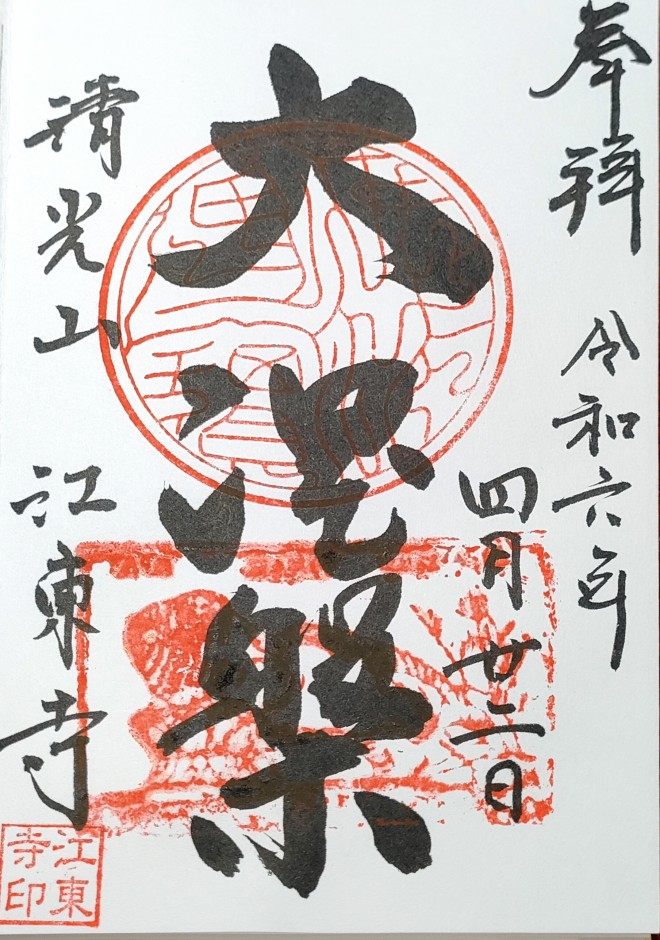 奉拝 令和六年
四月廿二日
大涅槃
光山 江東寺
江東
寺印